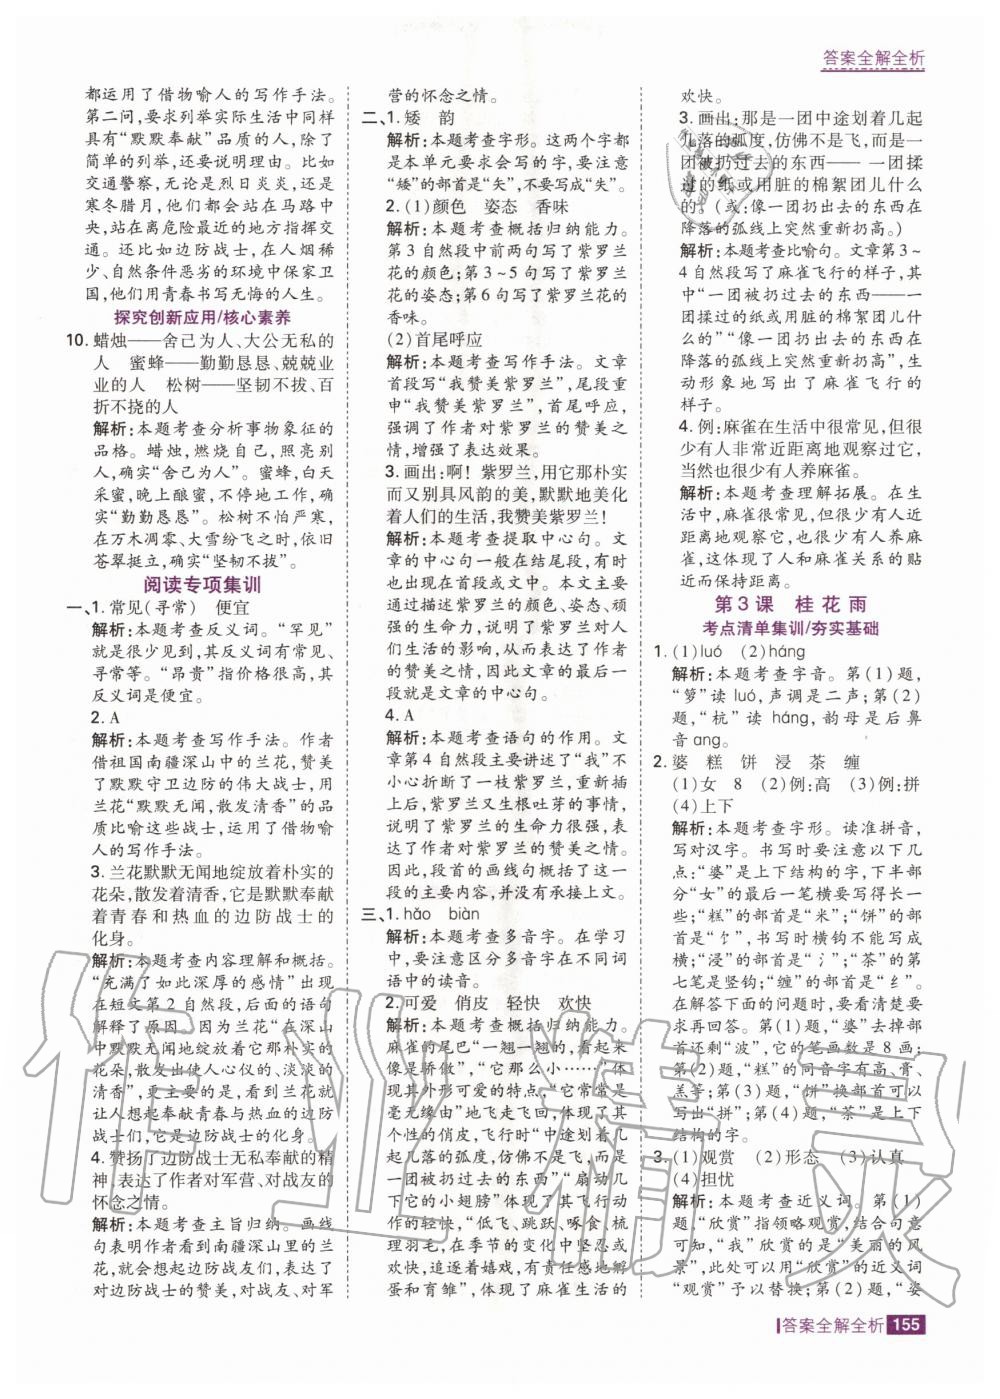 答案全解全析
都运用了借物喻人的写作手法。
第二问,要求列举实际生活中同样
具有“默默奉献”品质的人,除了
简单的列举,还要说明理由。比如
交通警察,无论是烈日炎炎,还是
寒冬腊月,他们都会站在马路中
央,站在离危险最近的地方指挥交
通。还比如边防战士,在人烟稀
少、自然条件恶劣的环境中保家卫
国,他们用青春书写无悔的人生。
探究创新应用/核心素养
10. 蜡烛——舍己为人、大公无私的
人 蜜蜂——勤勤恳恳、兢兢业
业的人 松树——坚韧不拔、百
折不挠的人
解析:本题考查分析事物象征的
品格。蜡烛,燃烧自己,照亮别
人,确实“舍己为人”。蜜蜂,白天
采蜜,晚上酿蜜,不停地工作,确
实“勤勤恳恳”。松树不怕严寒,
在万木凋零、大雪纷飞之时,依旧
苍翠挺立,确实“坚韧不拔”。
阅读专项集训
一、1. 常见(寻常) 便宜
解析:本题考查反义词。“罕见”
就是很少见到,其反义词有常见、
寻常等。“昂贵”指价格很高,其
反义词是便宜。
2. A
解析:本题考查写作手法。作者
借祖国南疆深山中的兰花,赞美
了默默守卫边防的伟大战士,用
兰花“默默无闻,散发清香”的品
质比喻这些战士,运用了借物喻
人的写作手法。
3. 兰花默默无闻地绽放着朴实的
花朵,散发着清香,它是默默奉献
着青春和热血的边防战士的
化身。
解析:本题考查内容理解和概括。
“充满了如此深厚的感情”出现
在短文第2自然段,后面的语句
解释了原因。因为兰花“在深山
中默默无闻地绽放着那朴实的
花朵,散发出使人心仪的、淡淡的
清香”,更主要的是,看到兰花就
让人想起奉献青春与热血的边防
战士们,它是边防战士的化身。
4. 赞扬了边防战士无私奉献的精
神,表达了作者对军营、对战友的
怀念之情。
解析:本题考查主旨归纳。画线
句表明作者看到南疆深山里的兰
花,就会想起边防战士,表达了
对边防战士的赞美,对战友、对军
营的怀念之情。
二、1. 矮 韵
解析:本题考查字形。这两个字都
是本单元要求会写的字,要注意
“矮”的部首是“矢”,不要写成“失”。
2. (1)颜色 姿态 香味
解析:本题考查概括归纳能力。
第3自然段中前两句写了紫罗兰
花的颜色;第3~5句写了紫罗兰
花的姿态;第6句写了紫罗兰花的
香味。
(2)首尾呼应
解析:本题考查写作手法。文章
首段写“我赞美紫罗兰”,尾段重
申“我赞美紫罗兰”,首尾呼应,
强调了作者对紫罗兰的赞美之
情,增强了表达效果。
3. 画出:啊!紫罗兰,用它那朴实
而又别具风韵的美,默默地美化
着人们的生活,我赞美紫罗兰!
解析:本题考查提取中心句。文
章的中心句一般在结尾段,有时
也出现在首段或文中。本文主要
通过描述紫罗兰的颜色、姿态、顽
强的生命力,说明了紫罗兰对人
们生活的影响,从而表达了作者
的赞美之情,因此文章的最后一
段就是文章的中心句。
4. A
解析:本题考查语句的作用。文
章第4自然段主要讲述了“我”不
小心折断了一枝紫罗兰,重新插
上后,紫罗兰又生根吐芽的事情,
说明了紫罗兰的生命力很强,表
达了作者对紫罗兰的赞美之情。
因此,段首的画线句概括了这一
段的主要内容,并没有承接上文。
三、1. hǎo biàn
解析:本题考查多音字。在学习
中,要注意区分多音字在不同词
语中的读音。
2. 可爱 俏皮 轻快 欢快
解析:本题考查概括归纳能力。
麻雀的尾巴“一翘一翘的,好像
是骄傲”,“它那么小……”体
现其外形可爱的特点,“它常常是
毫无缘由”地飞走飞回,体现了其
个性的俏皮,飞行时“中途划着几
起几落的弧度,仿佛不是飞,而是
一团被扔过去的东西”“扇动几
下它的小翅膀”体现了其飞行动
作的轻快,“低飞、跳跃、啄食,梳
理羽毛,在季节的变化中坚忍或
欢快,追逐着嬉戏,有责任感地孵
蛋和育雏”,体现了麻雀生活的
欢快。
3. 画出:那是一团中途划着几起
几落的弧度,仿佛不是飞,而是一
团被扔过去的东西—— 一团揉
过的纸或用脏的棉絮团儿什么
的。(或:像一团扔出去的东西在
降落的弧线上突然重新扔高。)
解析:本题考查比喻句。文章第3~
4自然段写了麻雀飞行的样子,其
中“一团被扔过去的东西——一团
揉过的纸或用脏的棉絮团儿什么
的”“像一团扔出去的东西在
降落的弧线上突然重新扔高”,生
动形象地写出了麻雀飞行的
样子。
4. 例:麻雀在生活中很常见,但很
少有人非常近距离地观察过它,
当然也很少有人养麻雀。
解析:本题考查理解拓展。在生
活中,麻雀很常见,但很少有人近
距离地观察它,也很少有人养麻
雀,这体现了人和麻雀关系的贴
近而保持距离。
第3课 桂花雨
考点清单集训/夯实基础
1. (1)luó (2)háng
解析:本题考查字音。第(1)题,
“箩”读 luó,声调是二声;第(2)
题,“杭”读 háng,韵母是后鼻
音 ang。
2. 婆 糕 饼 浸 茶 缠
(1)女 8 (2)例:高 (3)例:拼
(4)上下
解析:本题考查字形。读准拼音,
写对汉字。书写时要注意以下几
点:“婆”是上下结构的字,下半部
分“女”的最后一笔横要写得长一
些;“糕”的部首是“米”;“饼”的部首
是“饣”,书写时横钩不能写成
横;“浸”的部首是“氵”;“茶”的第
七笔是竖钩;“缠”的部首是“纟”。
在解答下面的问题时,要看清楚要
求再回答。第(1)题,“婆”去掉部
首还剩“波”,它的笔画数是8画;
第(2)题,“糕”的同音字有高、膏、
羔等;第(3)题,“饼”换部首可以
写出“拼”;第(4)题,“茶”是上下
结构的字。
3. (1)观赏 (2)形态 (3)认真
(4)担忧
解析:本题考查近义词。第(1)
题,“欣赏”指领略观赏,结合句意
可知,“我”欣赏的是“美丽的风
景”,此处可以用“欣赏”的近义词
“观赏”予以替换;第(2)题,“姿
答案全解全析 155
作业精灵